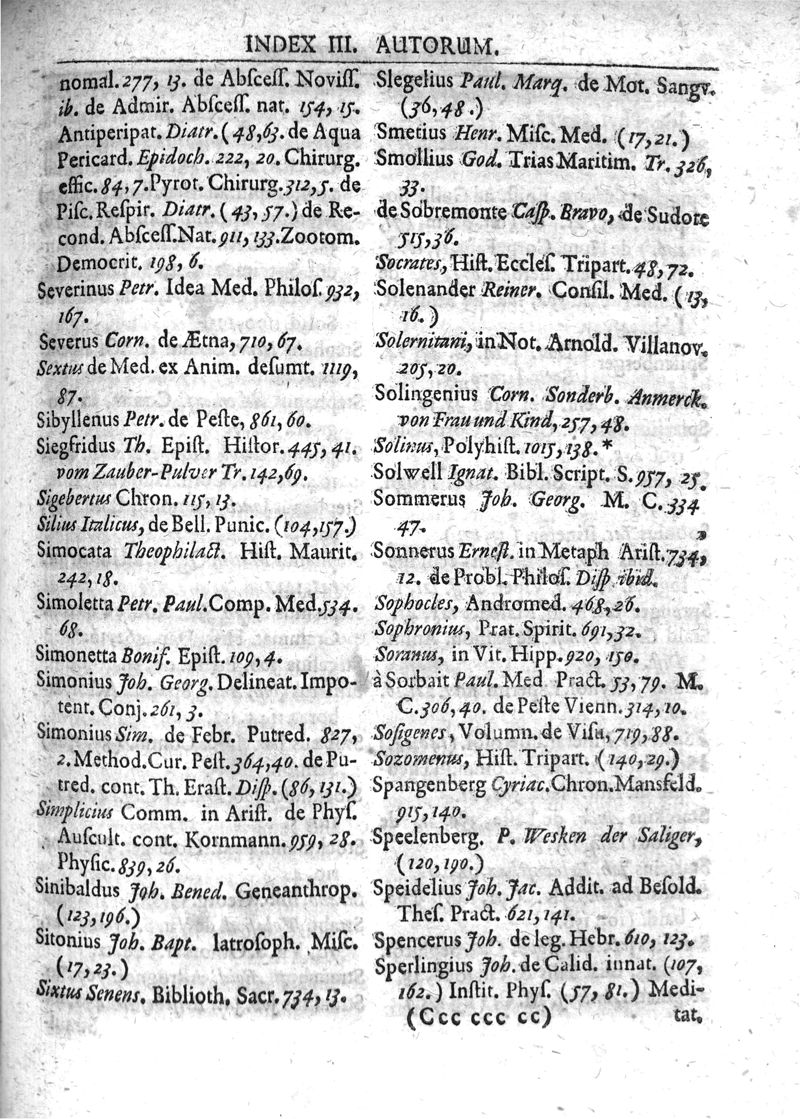 INDEX III. AUTORUM.
nomal. 277, 13. de Abſceſſ. Noviſſ.
ib. de Admir. Abſceſſ. nat. 154, 15.
Antiperipat. Diatr. (48,63. de Aqua
Pericard. Epidoch. 222, 20. Chirurg.
effic. 84, 7. Pyrot. Chirurg. 312, 5. de
Piſc. Reſpir. Diatr. (43, 57.) de Re-
cond. Abſceſſ. Nat. 911, 133. Zootom.
Democrit. 198, 6.
Severinus Petr. Idea Med. Philoſ. 932,
167.
Severus Corn. de Ætna, 710, 67.
Sextus de Med. ex Anim. deſumt. 1119,
87.
Sibyllenus Petr. de Peſte, 861, 60.
Siegfridus Th. Epiſt. Hiſtor. 445, 41.
vom Zauber-Pulver Tr. 142, 69.
Sigebertus Chron. 115, 13.
Silius Italicus, de Bell. Punic. (104,157.)
Simocata Theophilact. Hiſt. Maurit.
242, 18.
Simoletta Petr. Paul. Comp. Med. 534.
68.
Simonetta Bonif. Epiſt. 109, 4.
Simonius Joh. Georg. Delineat. Impo-
tent. Conj. 261, 3.
Simonius Sim. de Febr. Putred. 827,
2. Method. Cur. Peſt. 364, 40. de Pu-
tred. cont. Th. Eraſt. Diſp. (86, 131.)
Simplicius Comm. in Ariſt. de Phyſ.
Auſcult. cont. Kornmann. 959, 28.
Phyſic. 839, 26.
Sinibaldus Joh. Bened. Geneanthrop.
(123,196.)
Sitonius Joh. Bapt. Iatroſoph. Miſc.
(17, 23.)
Sixtus Senens. Biblioth. Sacr. 734, 13.
Slegelius Paul. Marq. de Mot. Sangv.
(36, 48.)
Smetius Henr. Miſc. Med. (17, 21.)
Smollius God. Trias Maritim. Tr. 326,
33.
de Sobremonte Caſp. Bravo, de Sudore
515, 36.
Socrates, Hiſt. Eccleſ. Tripart. 48, 72.
Solenander Reiner. Conſil. Med. (13,
16.)
Solernitani, in Not. Arnold. Villanov.
205, 20.
Solingenius Corn. Sonderb. Anmerck.
von Frau und Kind, 257, 48.
Solinus, Polyhiſt. 1015, 138.*
Solwell Ignat. Bibl. Script. S. 957, 25.
Sommerus Joh. Georg. M. C. 334
47. ,
Sonnerus Erneſt. in Metaph Ariſt. 734,
12. de Probl. Philoſ. Diſp ibid.
Sophocles, Andromed. 468, 26.
Sophronius, Prat. Spirit. 691, 32.
Soranus, in Vit. Hipp. 920, 150.
à Sorbait Paul. Med Pract. 53, 79. M.
C. 306, 40. de Peſte Vienn. 314, 10.
Soſigenes, Volumn. de Viſu, 719, 88.
Sozomenus, Hiſt. Tripart. (140, 29.)
Spangenberg Cyriac. Chron. Mansfeld.
915, 140.
Speelenberg. P. Wesken der Saliger,
(120, 190.)
Speidelius Joh. Jac. Addit. ad Beſold.
Theſ. Pract. 621, 141.
Spencerus Joh. de leg. Hebr. 610, 123.
Sperlingius Joh. de Calid. innat. (107,
162.) Inſtit. Phyſ. (57, 81.) Medi-
(Ccc ccc cc) tat.